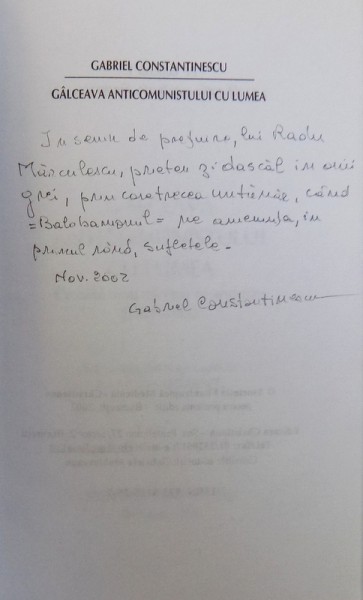 GABRIEL CONSTANTINESCU
GÂLCEAVA ANTICOMUNISTULUI CU LUMEA
In semn de prețuire, lui Radu
Mărculescu, prieten și dascăl in anii
grei, prin când
=Balobanionul= ne amenința, in
primul rând, sufletele.
Nov. 2002
Gabriel Constantinescu